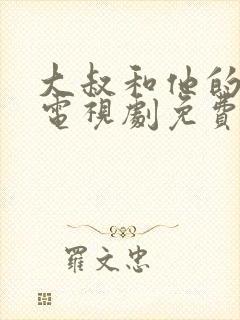 大叔和他的
電視劇免費
羅文忠